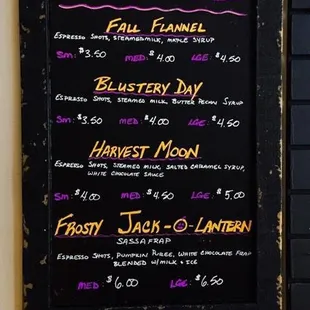 Fall Flannel
Espresso Shots, Steamed Milk, Maple Syrup
Sm: $3.50 Med: $4.00 Lge: $4.50
Blustery Day
Espresso Shots, Steamed Milk, Butter Pecan Syrup
Sm: $3.50 Med: $4.00 Lge: $4.50
Harvest Moon
Espresso Shots, Steamed Milk, Salted Caramel Syrup,
White Chocolate Sauce
Sm: $4.00 Med: $4.50 Lge: $5.00
Frosty Jack-O-Lantern
Sassafrap
Espresso Shots, Pumpkin Puree, White Chocolate Frap
Blended w/ Milk + Ice
Med: $6.00 Lge: $6.50